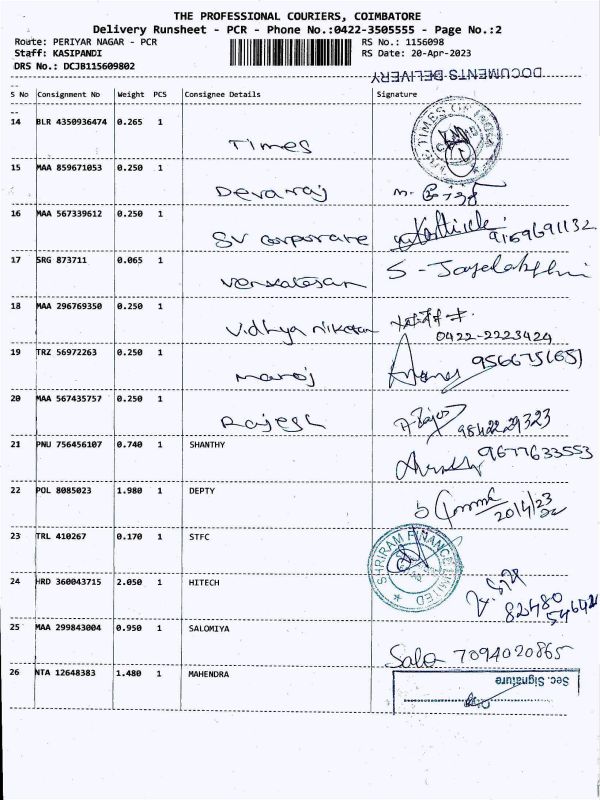 THE PROFESSIONAL COURIERS, COIMBATORE
Delivery Runsheet - PCR - Phone No.:0422-3505555 - Page No.:2
Route: PERIYAR NAGAR - PCR RS No.: 1156098
Staff: KASIPANDI RS Date: 20-Apr-2023
DRS No.: DCJB115609802
DOCUMENTS DELIVERY
S No Consignment No Weight PCS Consignee Details Signature
14 BLR 4350936474 0.265 1 Times THE TIMES OF INDIA
15 MAA 859671053 0.250 1 Devaraj
16 MAA 567339612 0.250 1 SV corporate 9159691132
17 SRG 873711 0.065 1 Venkatesan S - Jayalakshmi
18 MAA 296769350 0.250 1 Vidhya niketan
0422-2223424
19 TRZ 56972263 0.250 1 Manoj
20 MAA 567435757 0.250 1 Rajesh
21 PNU 756456107 0.740 1 SHANTHY 9677633553
22 POL 8085023 1.980 1 DEPTY
20/4/23
23 TRL 410267 0.170 1 STFC SHRIRAM FINANCE LIMITED
24 HRD 360043715 2.050 1 HITECH
82480
54642
25 MAA 299843004 0.950 1 SALOMIYA Salo 7094020865
26 NTA 12648383 1.480 1 MAHENDRA Sec. Signature